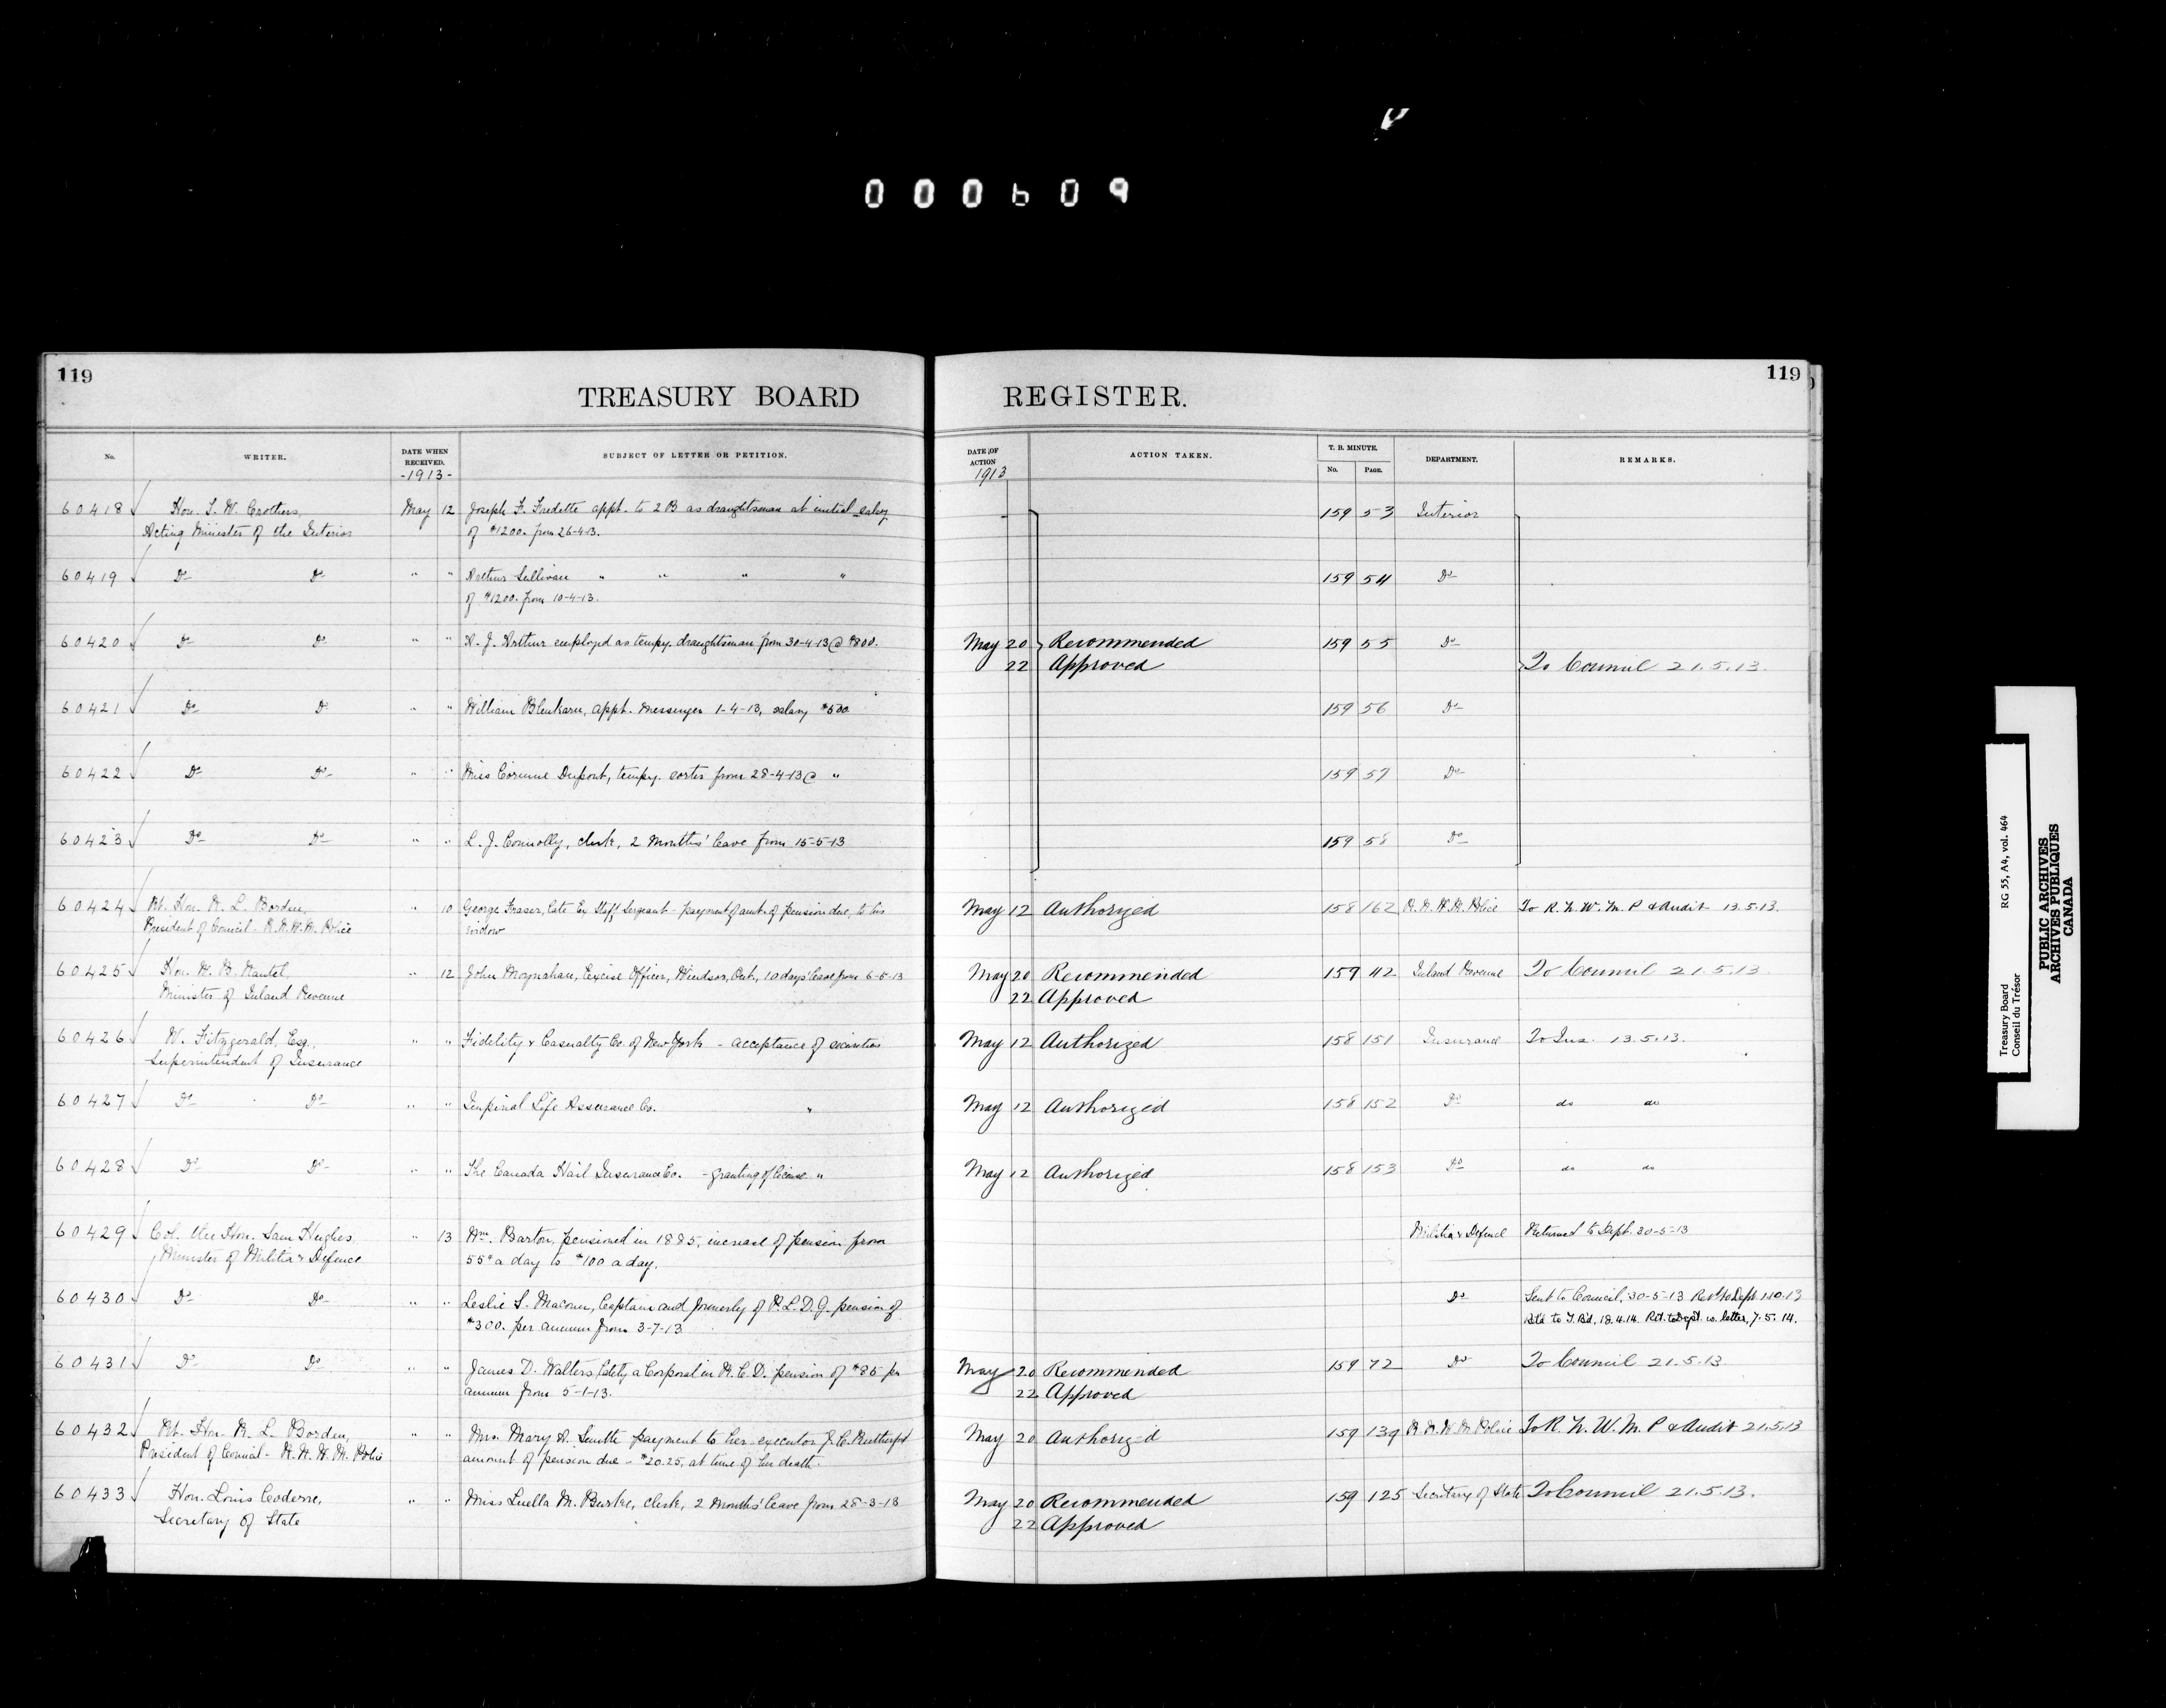 000609
119
119
TREASURY BOARD REGISTER.
No. WRITER. DATE WHEN RECEIVED. SUBJECT OF LETTER OR PETITION. DATE OF ACTION ACTION TAKEN. T. B. MINUTE. No. PAGE. DEPARTMENT. REMARKS.
-1913- 1913
60418 Hon. T. W. Crothers, May 12 Joseph F. Fredette appt. to 2B as draughtsman at initial salary 159 53 Interior
Acting Minister of the Interior of $1200. from 26-4-13.
60419 Do Do " " Arthur Sullivan " " " " 159 54 Do
of $1200. from 10-4-13.
60420 Do Do " " A. J. Arthur employed as tempy. draughtsman from 30-4-13 @ $800. May 20 Recommended 159 55 Do
22 Approved To Council 21.5.13.
60421 Do Do " " William Blenkarn, appt. Messenger 1-4-13, salary $500. 159 56 Do
60422 Do Do " " Miss Corinne Dupont, tempy. sorter from 28-4-13 @ " 159 57 Do
60423 Do Do " " L. J. Connolly, clerk, 2 months' leave from 15-5-13 159 58 Do
60424 Rt. Hon. R. L. Borden, " 10 George Fraser, late Ex Staff Sergeant - payment of amt. of pension due, to his May 12 Authorized 158 162 R.N.W.M. Police To R. N. W. M. P & Audit 13.5.13.
President of Council - R.N.W.M. Police widow
60425 Hon. W. B. Nantel, " 12 John Moynahan, Excise Officer, Windsor, Ont., 10 days' leave from 6-5-13 May 20 Recommended 159 42 Inland Revenue To Council 21.5.13
Minister of Inland Revenue 22 Approved
60426 W. Fitzgerald, Esq., " " Fidelity & Casualty Co. of New York - acceptance of securities May 12 Authorized 158 151 Insurance To Ins. 13.5.13.
Superintendent of Insurance
60427 Do Do " " Imperial Life Assurance Co. " May 12 Authorized 158 152 Do do do
60428 Do Do " " The Canada Hail Insurance Co. - granting of license " May 12 Authorized 158 153 Do do do
60429 Col. the Hon. Sam Hughes, " 13 Wm. Barton, pensioned in 1885, increase of pension from Militia & Defence Returned to Dept. 30-5-13
Minister of Militia & Defence 55c a day to $1.00 a day.
60430 Do Do " " Leslie S. Macoun, Captain and formerly of P.L.D.G. pension of Do Sent to Council, 30-5-13 Ret'd to Dept 1.10.13
$300. per annum from 3-7-13 Rtd to T. Bd, 18.4.14. Rtd. to Dept. w. letter, 7.5.14.
60431 Do Do " " James D. Walters, lately a Corporal in R.C.D. pension of $85 per May 20 Recommended 159 72 Do To Council 21.5.13
annum from 5-1-13. 22 Approved
60432 Rt. Hon. R. L. Borden, " " Mrs. Mary A. Smith payment to her executor J. C. Rutherford May 20 Authorized 159 139 R.N.W.M. Police To R. N. W. M. P & Audit 21.5.13
President of Council - R.N.W.M. Police amount of pension due - $20.25, at time of her death.
60433 Hon. Louis Coderre, " " Miss Luella M. Burke, clerk, 2 months' leave from 28-3-13 May 20 Recommended 159 125 Secretary of State To Council 21.5.13.
Secretary of State 22 Approved
Treasury Board RG 55, A4, vol. 464
Conseil du Trésor
PUBLIC ARCHIVES
ARCHIVES PUBLIQUES
CANADA